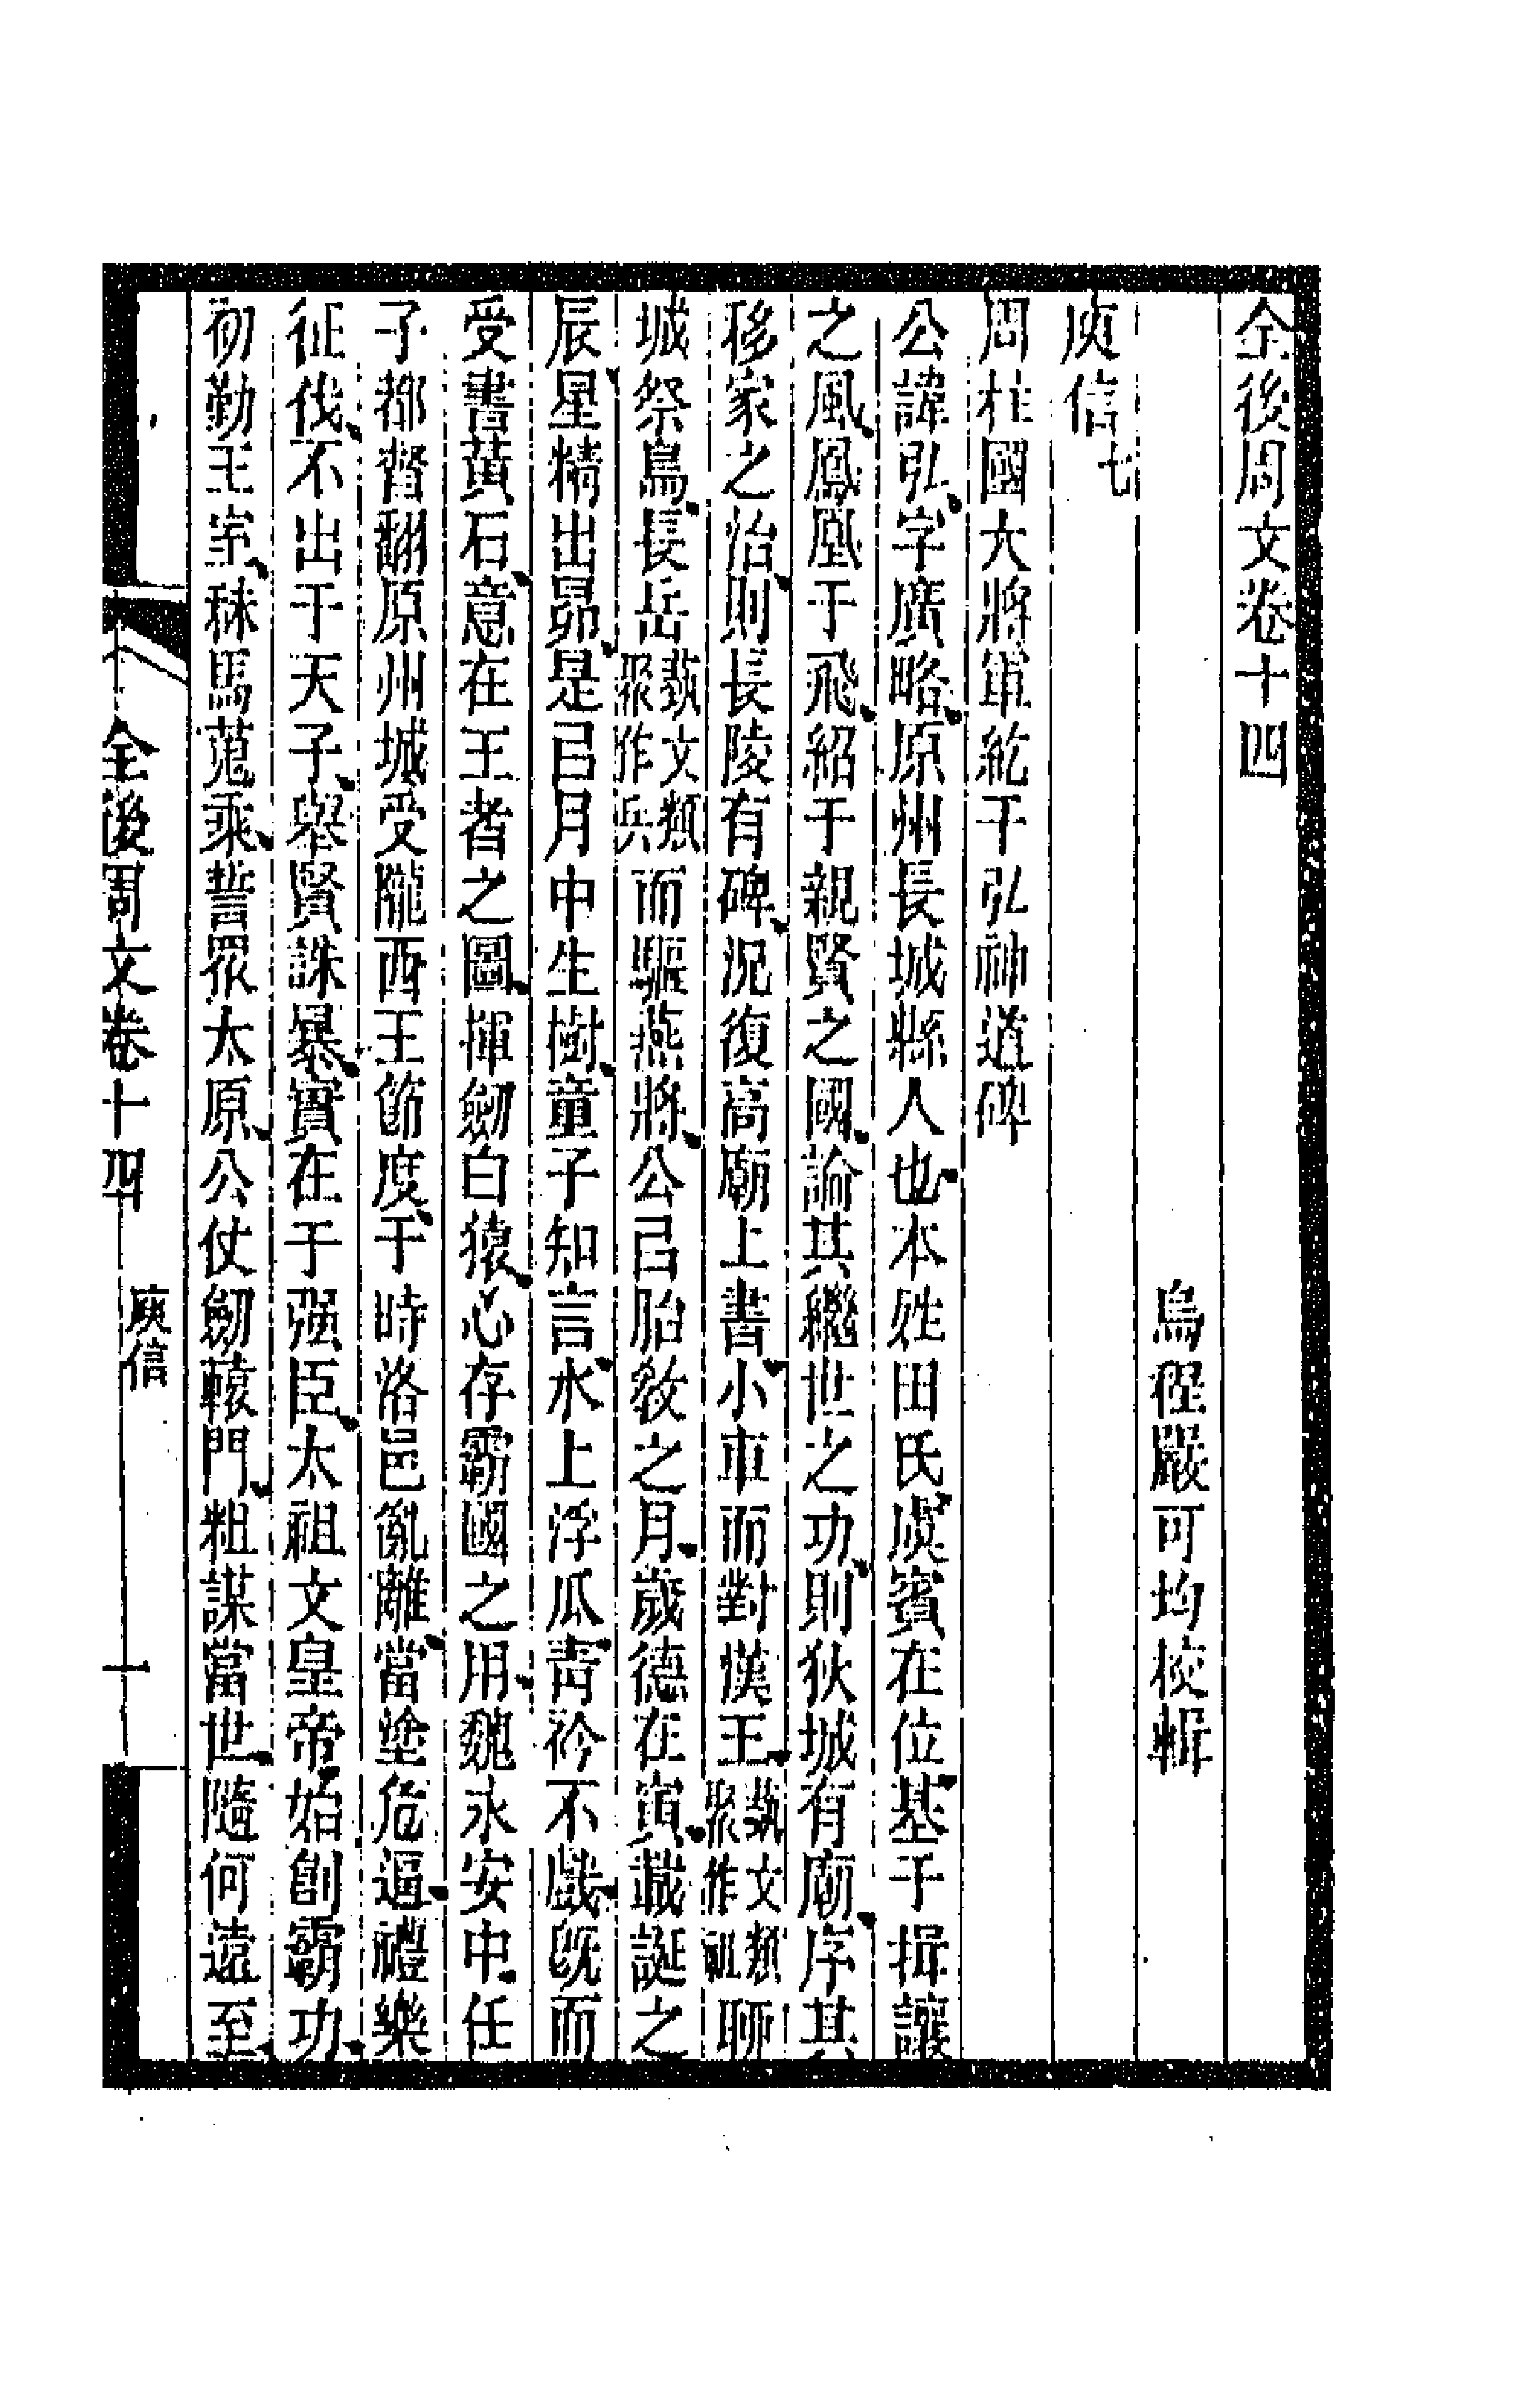 全後周文卷十四
烏程嚴可均校輯
庾信七
周柱國大將軍紇干弘神道碑
公諱弘字廣略原州長城縣人也本姓田氏虞賓在位基于揖讓
之風鳳凰于飛紹于親賢之國論其繼世之功則狄城有廟序其
移家之治則長陵有碑況復高廟上書小車而對漢王藝文類聚作祖聊
城祭鳥長岳藝文類聚作兵而驅燕將公㠯胎敎之月歲德在寅載誕之
辰星精出昴是㠯月中生樹童子知言水上浮瓜靑衿不戲旣而
受書黃石意在王者之圖揮劒白猿心存霸國之用魏永安中任
子都督翻原州城受隴西王節度于時洛邑亂離當塗危逼禮樂
征伐不出于天子舉賢誅暴實在于强臣太祖文皇帝始創霸功
初勤王室秣馬蒐乘誓眾太原公仗劒轅門粗謀當世隨何遠至
全後周文卷十四
庾信
一